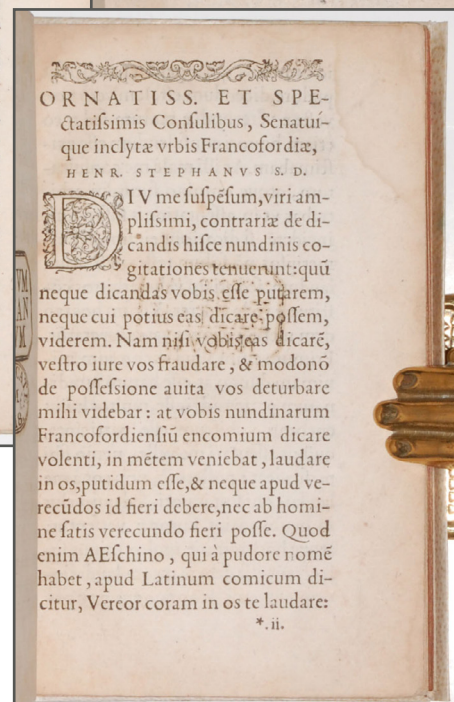 ORNATISS. ET SPE-
ctatiſsimis Conſulibus, Senatuí-
que inclytæ vrbis Francofordiæ,
HENR. STEPHANVS S. D.
DIV me ſuſpẽſum, viri am-
pliſsimi, contrariæ de di-
candis hiſce nundinis co-
gitationes tenuerunt: quũ
neque dicandas vobis eſſe putarem,
neque cui potius eas dicare poſſem,
viderem. Nam niſi vobis eas dicarẽ,
veſtro iure vos fraudare, & modonõ
de poſſeſsione auita vos deturbare
mihi videbar: at vobis nundinarum
Francofordienſiũ encomium dicare
volenti, in mẽtem veniebat, laudare
in os, putidum eſſe, & neque apud ve-
recũdos id fieri debere, nec ab homi-
ne ſatis verecundo fieri poſſe. Quod
enim AEſchino, qui à pudore nomẽ
habet, apud Latinum comicum di-
citur, Vereor coram in os te laudare:
*.ii.
VM
AN
VM